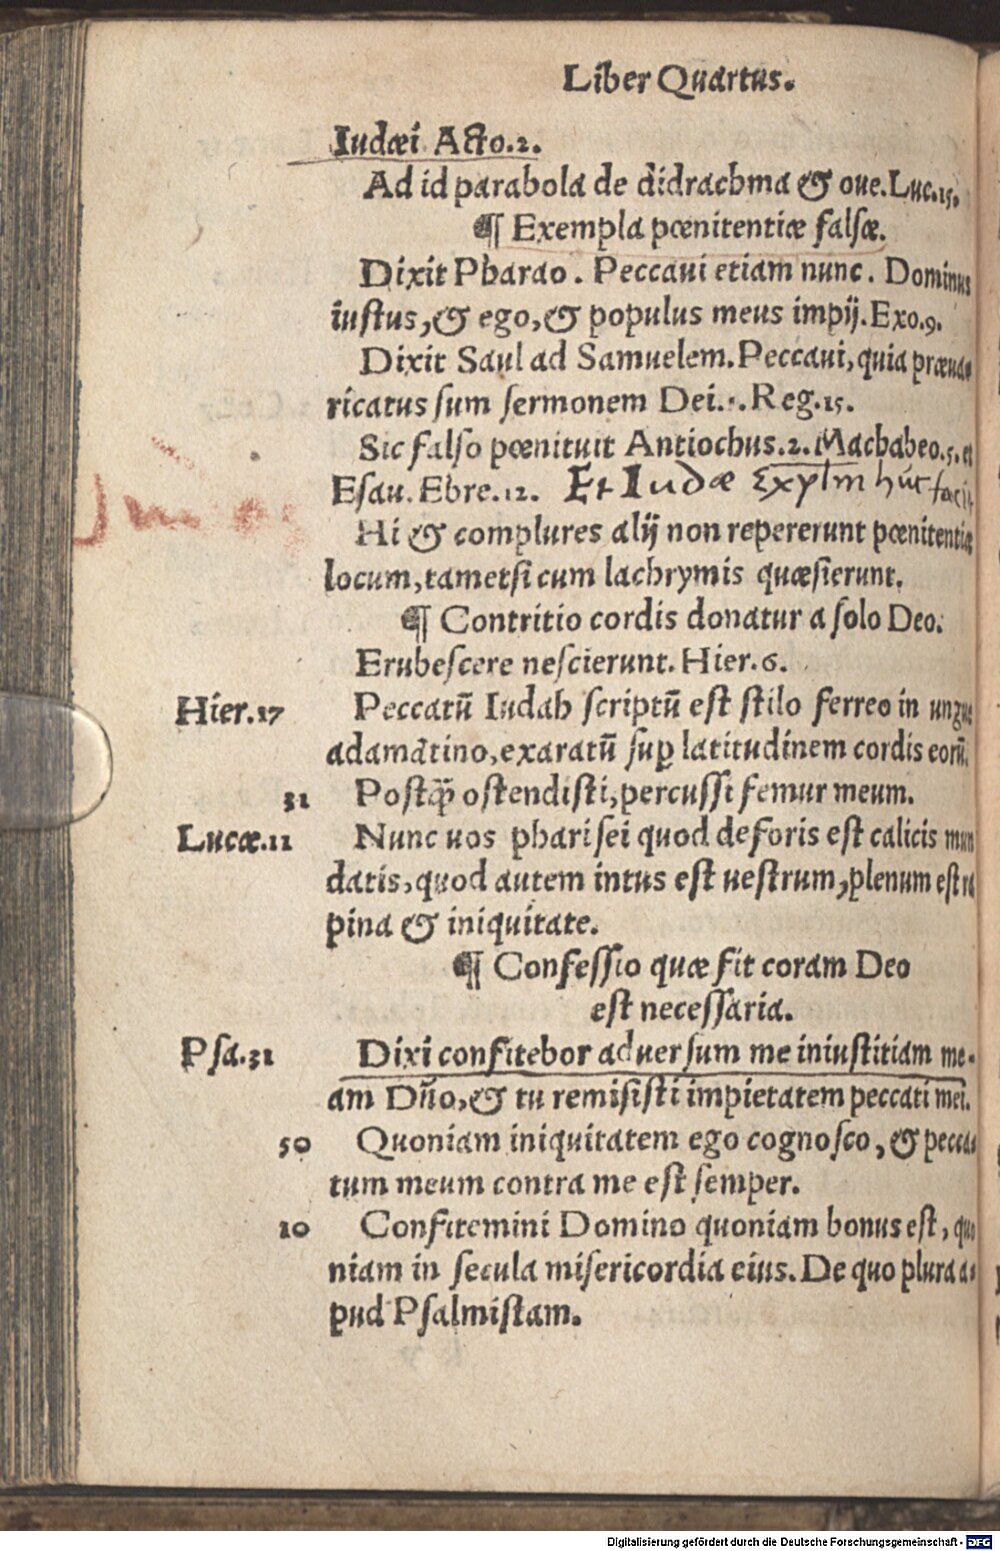 Liber Quartus.
Iudæi Acto.2.
Ad id parabola de didrachma & oue. Luc.15.
¶ Exempla pœnitentiæ falsæ.
Dixit Pharao. Peccaui etiam nunc. Dominus
iustus, & ego, & populus meus impij. Exo.9.
Dixit Saul ad Samuelem. Peccaui, quia præua-
ricatus sum sermonem Dei. 1. Reg.15.
Sic falso pœnituit Antiochus. 2. Machabeo.5. et
Esau. Ebre.12. Et Iudæ
Hi & complures alij non repererunt pœnitentiæ
locum, tametsi cum lachrymis quæsierunt.
¶ Contritio cordis donatur a solo Deo.
Erubescere nescierunt. Hier.6.
Hier.17 Peccatū Iudah scriptū est stilo ferreo in ungue
adamātino, exaratū suꝑ latitudinem cordis eorū.
31 Postꝙ̄ ostendisti, percussi femur meum.
Lucæ.11 Nunc uos pharisei quod deforis est calicis mun
datis, quod autem intus est uestrum, plenum est ra
pina & iniquitate.
¶ Confessio quæ fit coram Deo
est necessaria.
Psa.31 Dixi confitebor aduersum me iniustitiam me-
am Dño, & tu remisisti impietatem peccati mei.
50 Quoniam iniquitatem ego cognosco, & pecca-
tum meum contra me est semper.
10 Confitemini Domino quoniam bonus est, quo
niam in secula misericordia eius. De quo plura a-
pud Psalmistam.
Digitalisierung gefördert durch die Deutsche Forschungsgemeinschaft - DFG